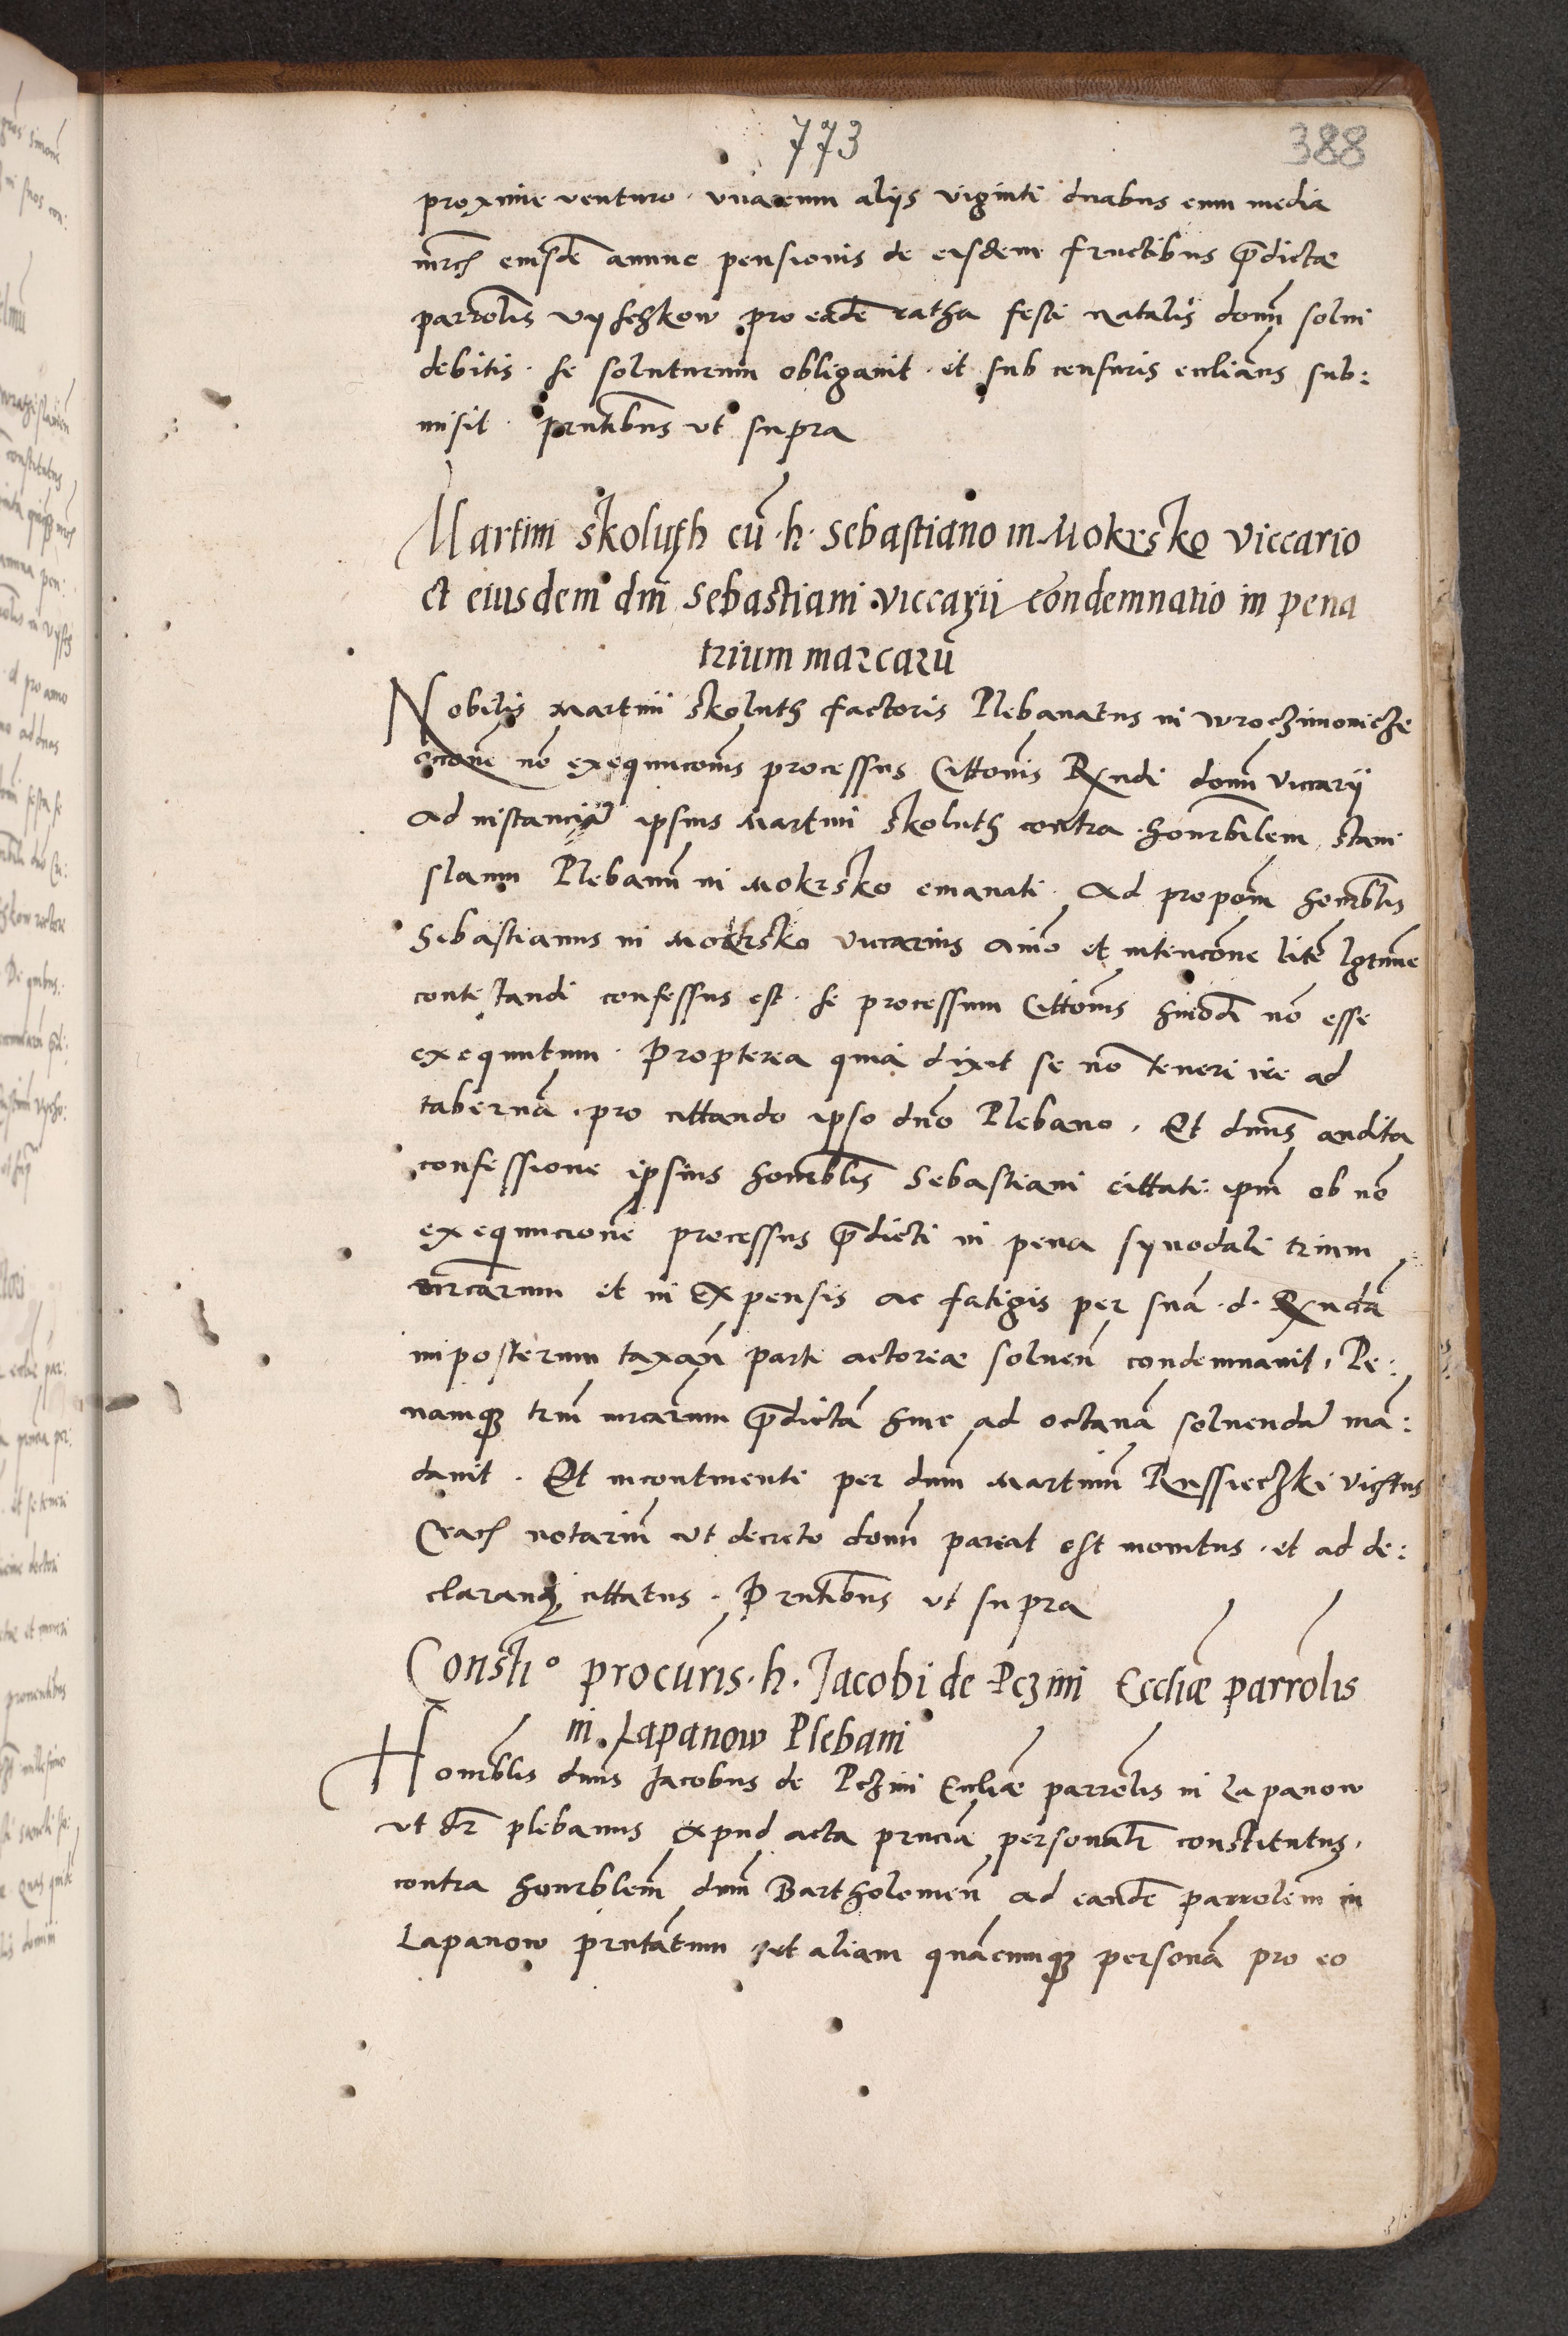 773
388
proxime venturo. unacum aliis viginti duabus cum media
mrcs eiusde annue pensionis de eisdem fructibus p̄dictæ
parrolis vyschezkow pro eadē ratha festi Natalis domi solui
debitis. se soluturum obligauit. et sub censuris eccliacis sub:
misit. prntibus vt supra
Martini skoluth cū .h. Sebastiano in Mokrsko viccario
et eiusdem dni Sebastiani viccarii condemnatio in pena
trium marcarū
Nobilis Martini skoluth factoris Plebanatus in wroczimowicze
occone no exequucionis processus Cittonis Rxndi domi viccarii
ad instancia ipsius Martini skoluth contra honrbilem stani
slaum Plebanū in Mokrsko emanati. Ad propom honrblis
Sebastianus in Mokrsko viccarius animo et intencone litē lgtime
contestandi confessus est. se processum Cittonis hmodi no esse
exequutum. Propterea quia dixit se nō teneri ire ad
tabernā. pro cittando ipso dno Plebano. Et dnus audita
confessione ipsius honrblis Sebastiani cittati. ipm ob no
exequucionē processus p̄dicti in pena synodali trium
mrcarum et in expensis ac fatigis per suā .d. Rxndā
imposterum taxan parti actoreæ soluen condemnauit, Pe:
namqz trium mrcarum p̄dictā hinc ad octauā soluendā mā:
dauit. Et incontinenti per dnm Martinū Russieczki
notariū ut decreto domi pareat est monitus. et ad de:
clarandū cittatus. Prntibus ut supra
Constio procuris .h. Jacobi de Pczini Eccliæ parrolis
in Lapanow Plebani
Honrblis dnus Jacobus de Pczini Eccliæ parrolis in Lapanow
ut dr plebanus apud acta prncia personalr constitutus,
contra honrblem dnm Bartholomeū ad eandē parrolem in
Lapanow prntatum et aliam quācunqz personā pro eo